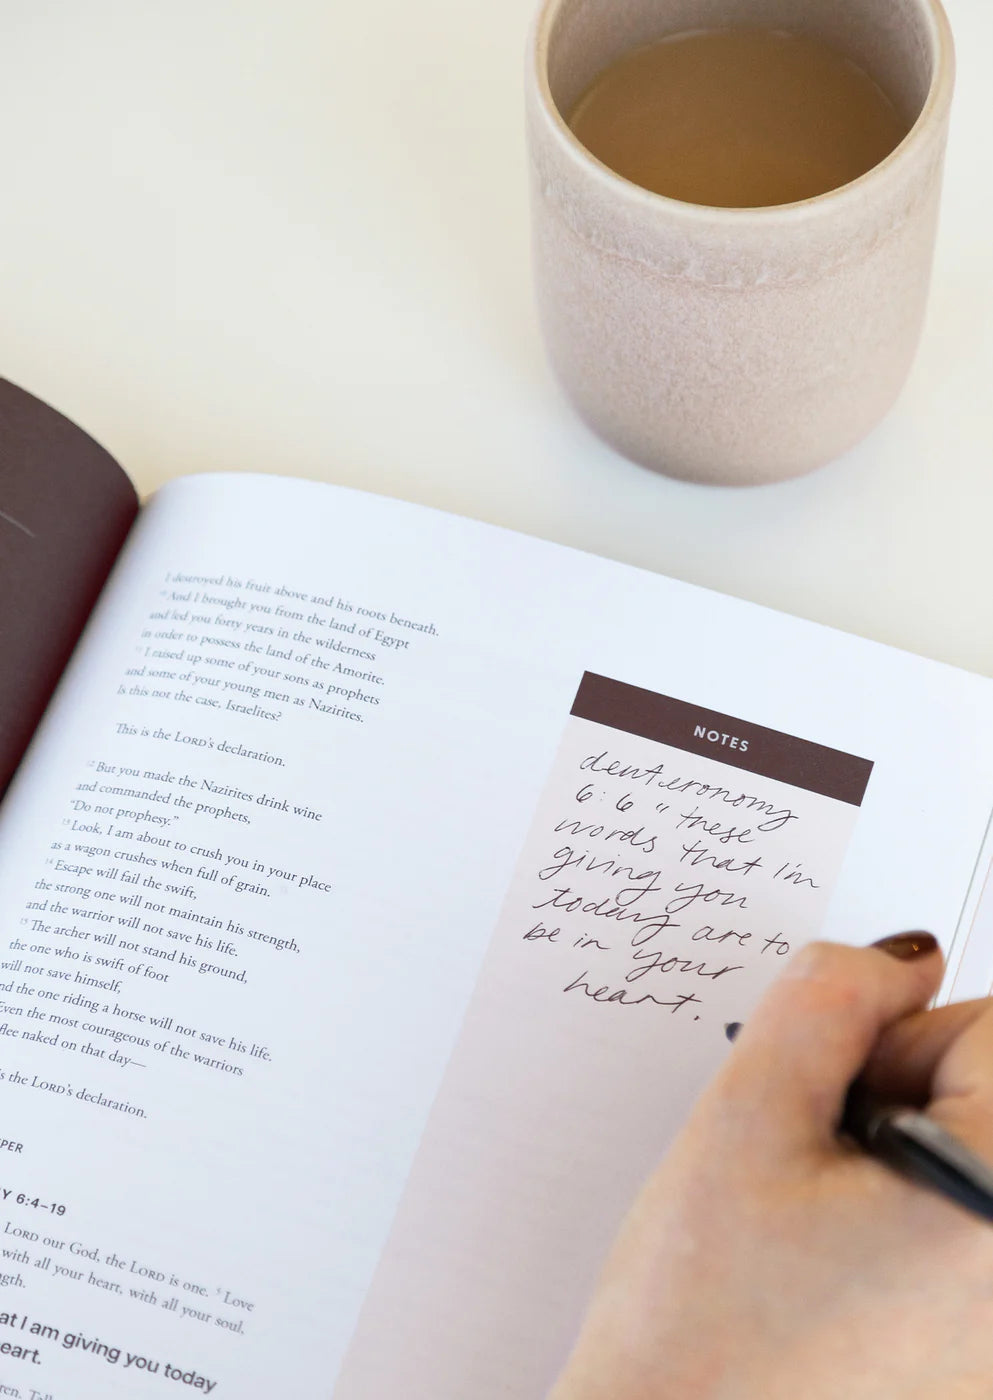 I destroyed his fruit above and his roots beneath.
¹⁰ And I brought you from the land of Egypt
and led you forty years in the wilderness
in order to possess the land of the Amorite.
¹¹ I raised up some of your sons as prophets
and some of your young men as Nazirites.
Is this not the case, Israelites?
This is the LORD's declaration.
¹² But you made the Nazirites drink wine
and commanded the prophets,
"Do not prophesy."
¹³ Look, I am about to crush you in your place
as a wagon crushes when full of grain.
¹⁴ Escape will fail the swift,
the strong one will not maintain his strength,
and the warrior will not save his life.
¹⁵ The archer will not stand his ground,
the one who is swift of foot
will not save himself,
nd the one riding a horse will not save his life.
Even the most courageous of the warriors
flee naked on that day—
s the LORD's declaration.
PER
Y 6:4–19
LORD our God, the LORD is one. ⁵ Love
with all your heart, with all your soul,
ngth.
at I am giving you today
eart.
ren.
NOTES
deuteronomy
6:6 "these
words that i'm
giving you
today are to
be in your
heart.